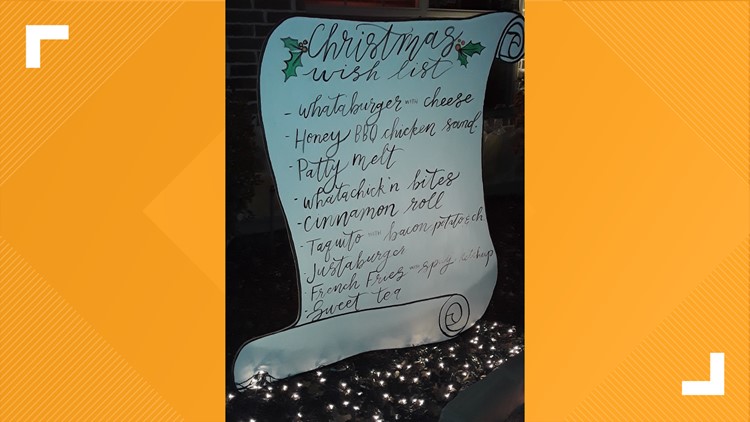 Christmas
wish list
- Whataburger with cheese
- Honey BBQ chicken sand.
- Patty melt
- Whatachick'n bites
- Cinnamon roll
- Taquito with bacon potato & ch
- Justaburger
- French Fries with spicy ketchup
- Sweet tea